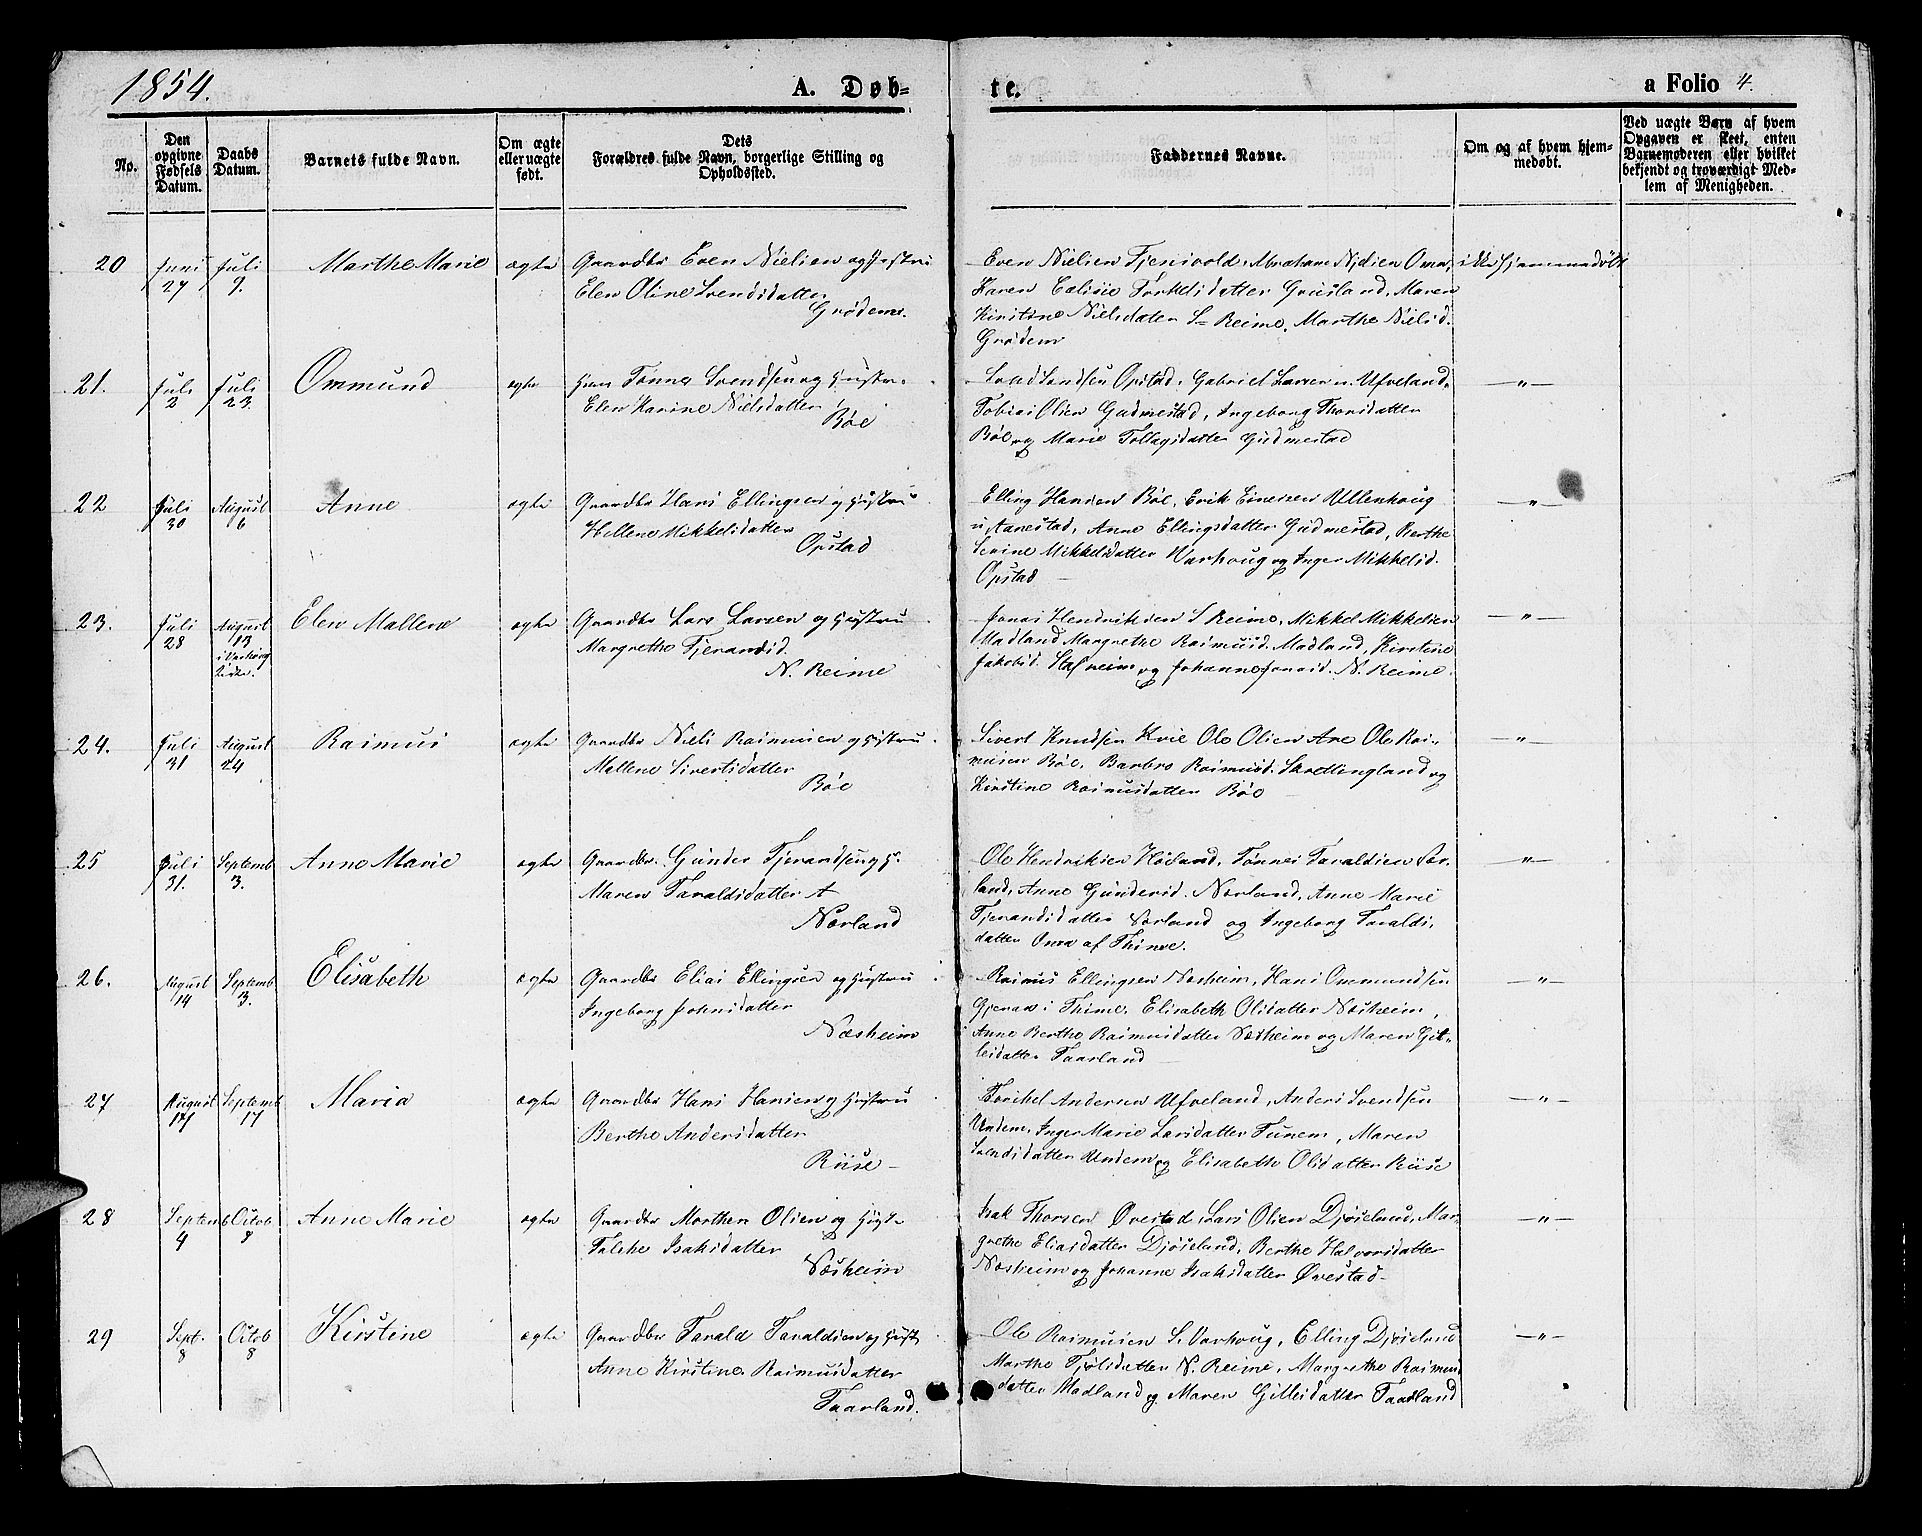 1854.
A. Døb=
te.
a Folio 4.
No.
Den opgivne Fødsels Datum.
Daabs Datum.
Barnets fulde Navn.
Om ægte eller uægte født.
Dets Forældres fulde Navn, borgerlige Stilling og Opholdssted.
Faddernes Navne.
Om og af hvem hjemmedøbt.
Ved uægte Barn af hvem Opgaven er skeet, enten Barnemoderen eller hvilket bekjendt og troværdigt Medlem af Menigheden.
20
Juni 27
Juli 9.
Marthe Marie
ægte
Gaardbr Even Nielsen og Hustru
Elen Oline Svendsdatter
Grødem.
Even Nielsen Tjensvold, Abraham Nielsen
Karen Torkelsdatter Grusland, Maren
Kirstine Nielsdatter S. Reime, Marthe Nielsd.
Grødem
ikke hjemmedøbt
21.
Juli 2
Juli 23.
Ommund
ægte
Tønnes Svendsen og Hustru
Elen Karine Nielsdatter
Bøe
Opstad, Gabriel Larsen n. Ufveland,
Tobias Olsen Gudmestad, Ingeborg Thorsdatter
Bøe og Marie Tollagsdatter Gudmestad
—„—
22
Juli 30
August 6
Anne
ægte
Gaardbr Hans Ellingsen og Hustru
Hellene Mikkelsdatter
Opstad
Elling Hansen Bøe, Erik Einersen Ullenhoug
i Aanestad, Anne Ellingsdatter Gudmestad, Berthe
Serine Mikkelsdatter Varhoug og Inger Mikkelsd.
Opstad
—„—
23.
Juli 28
August 13 i Varhoug Kirke.
Elen Mallene
ægte
Gaardbr Lars Larsen og Hustru
Margrethe Tjerandsd.
N. Reime
Jonas Hendriksen S. Reime, Mikkel Mikkelsen
Madland Margrethe Rasmusd. Madland, Kirstine
Jakobsd. og Johanne Jonasd. N. Reime.
—„—
24.
Juli 31
August 24
Rasmus
ægte
Gaardbr Niels Rasmusen og Hustru
Mallene Sivertsdatter
Bøe
Sivert Knudsen Kvie Ole Olsen Ane Ole Ras-
musen Bøe, Barbro Rasmusd. Skretlingland og
Kirstine Rasmusdatter Bøe
—„—
25
Juli 31.
Septemb 3.
Anne Marie
ægte
Gaardbr. Gunder Tjerandsen og H.
Maren Taraldsdatter
Nærland
Ole Hendriksen Høiland, Tønnes Taraldsen Nær-
land, Anne Gundersd. Nærland, Anne Marie
Tjerandsdatter Nærland og Ingeborg Taralds-
datter Omra af Thime.
—„—
26.
August 14
Septemb 3.
Elisabeth
ægte
Gaardbr Elias Ellingsen og Hustru
Ingeborg Johnsdatter
Næsheim
Rasmus Ellingsen Næsheim, Hans Ommundsen
Gjeraw i Thime, Elisabeth Olsdatter Næsheim,
Anne Berthe Rasmusdatter Næsheim og Maren Gil-
lesdatter Taarland
—„—
27
August 17
Septemb 17
Maria
ægte
Gaardbr Hans Hansen og Hustru
Berthe Andersdatter
Riise
Torkel Andersen Ufveland, Anders Svendsen
Undem, Inger Marie Larsdatter Tunem, Maren
Svendsdatter Undem og Elisabeth Olsdatter Riise
—„—
28
Septemb 4
Octob 8
Anne Marie
ægte
Gaardbr Morthen Olsen og Hust
Talche Isaksdatter
Næsheim
Isak Thorsen Øvestad, Lars Olsen Djøseland, Mar-
grethe Eliasdatter Djøseland, Berthe Halvorsdatter
Næsheim og Johanne Isaksdatter Øvestad
—„—
29
Sept. 8
Octob 8
Kirstine
ægte
Gaardbr Tarald Taraldsen og Hust
Anne Kirstine Rasmusdatter
Taarland.
Ole Rasmusen S. Varhoug, Elling Djøseland
Marthe Tjølsdatter N. Reime, Margrethe Rasmus
datter Madland og Maren Gillesdatter Taarland
—„—